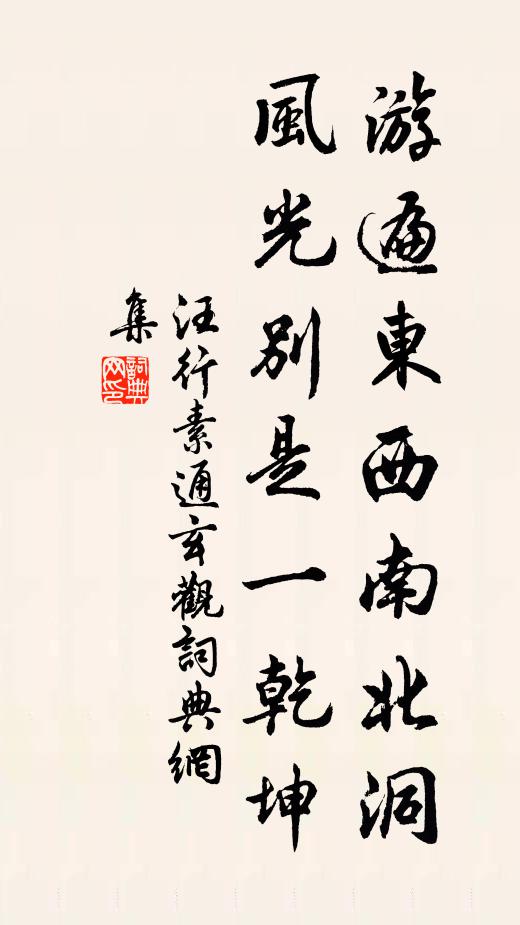 游遍東西南北洞
風光別是一乾坤
汪行素通玄觀詞典網
集
詞典網印